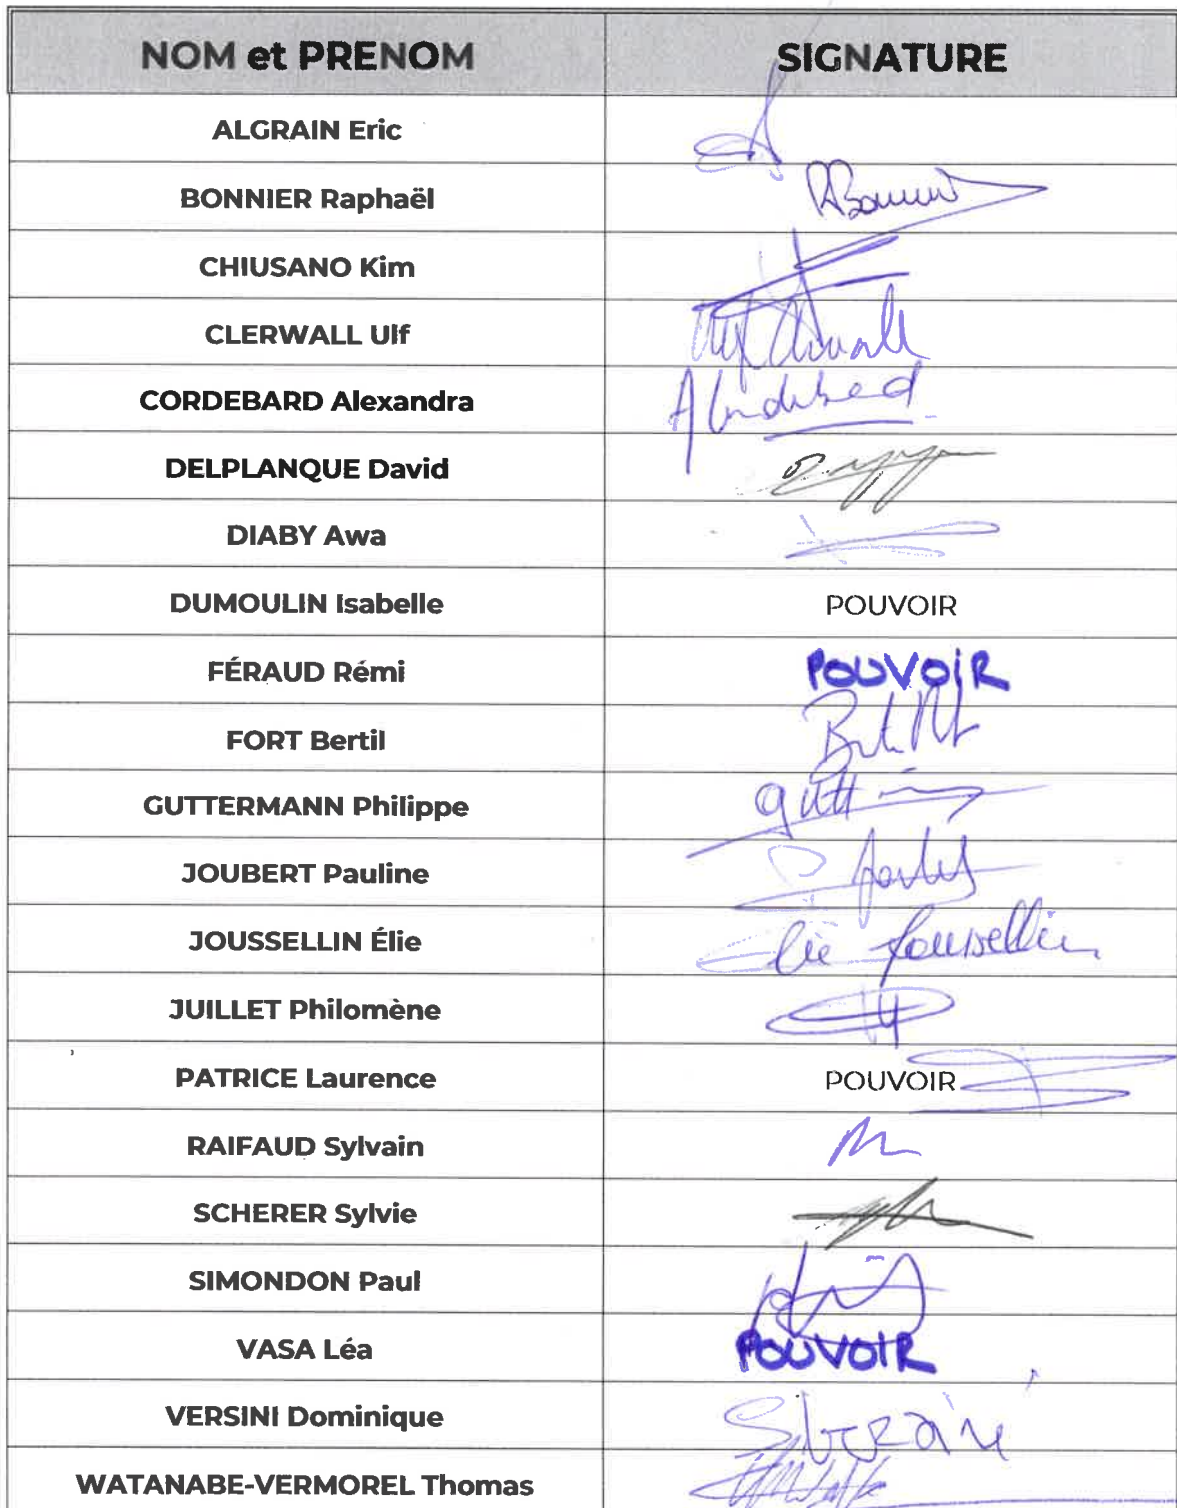 NOM et PRENOM SIGNATURE
ALGRAIN Eric
BONNIER Raphaël RBonnier
CHIUSANO Kim
CLERWALL Ulf Ulf Clerwall
CORDEBARD Alexandra ACordebard
DELPLANQUE David
DIABY Awa
DUMOULIN Isabelle POUVOIR
FÉRAUD Rémi POUVOIR
FORT Bertil
GUTTERMANN Philippe
JOUBERT Pauline
JOUSSELLIN Élie Élie Jousselin
JUILLET Philomène
PATRICE Laurence POUVOIR
RAIFAUD Sylvain
SCHERER Sylvie
SIMONDON Paul
VASA Léa POUVOIR
VERSINI Dominique
WATANABE-VERMOREL Thomas